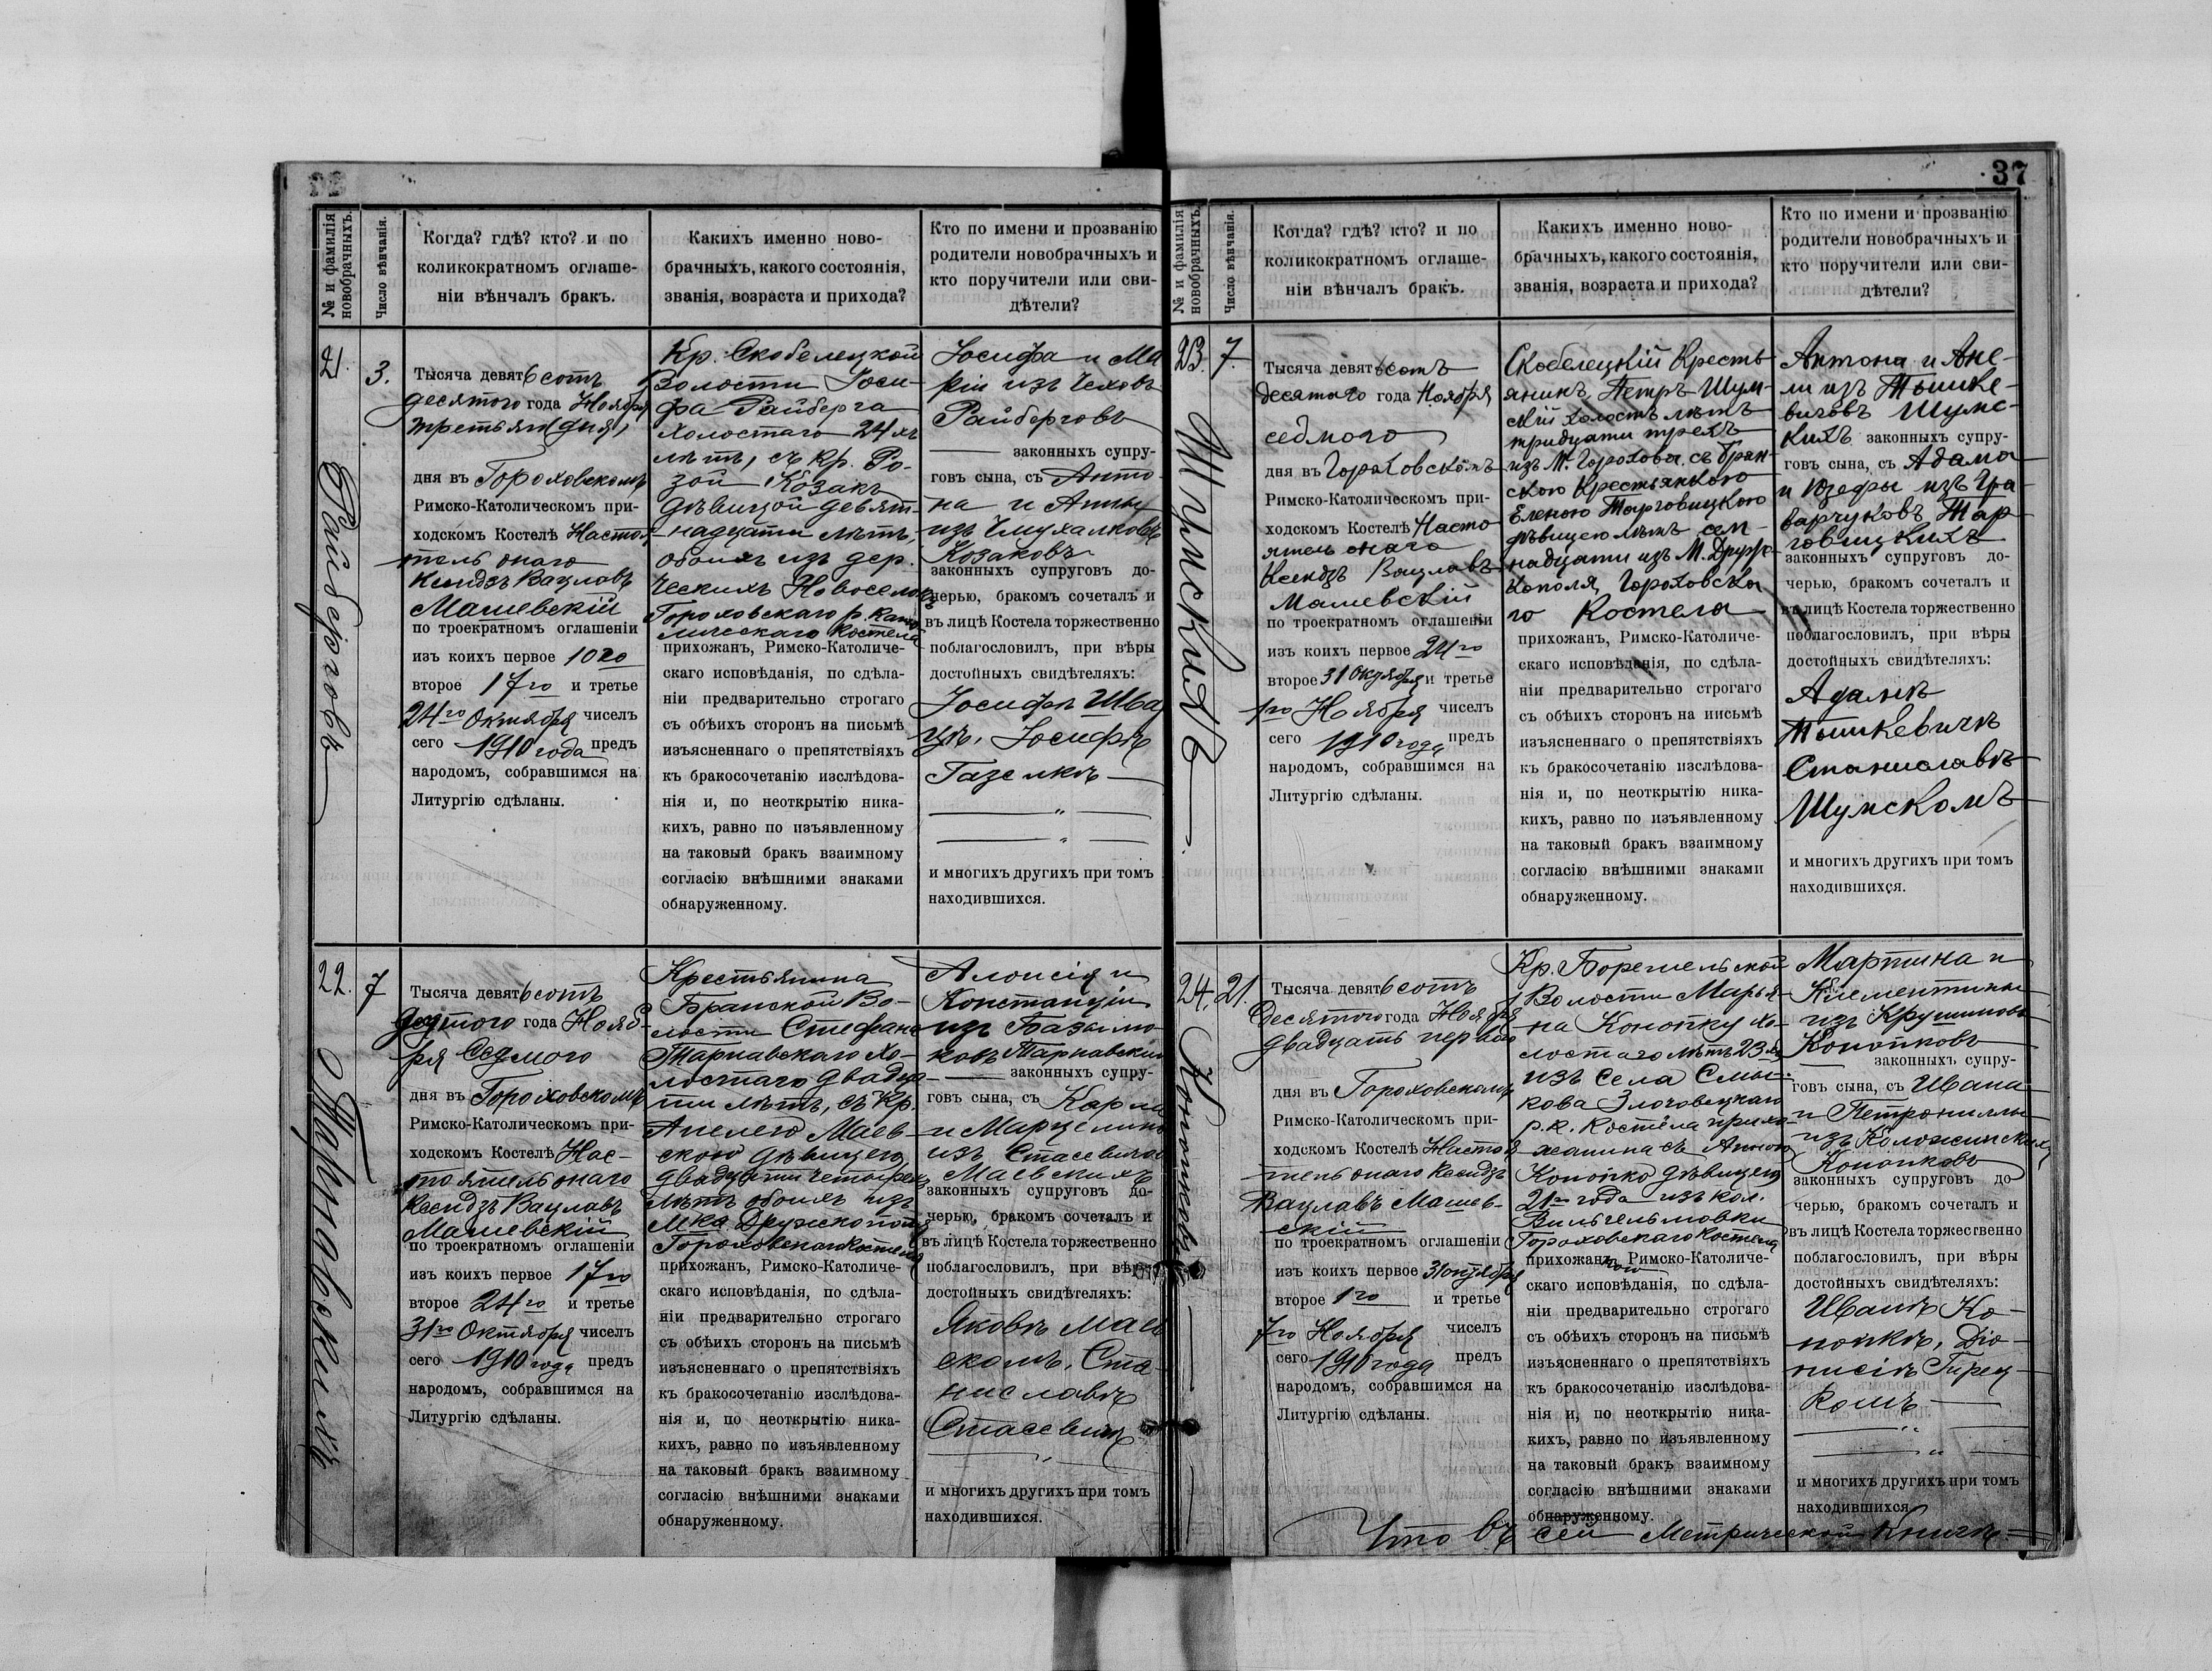 37
№ и фамилія новобрачныхъ.
Число вѣнчанія.
Когда? гдѣ? кто? и по
коликократномъ оглаше-
ніи вѣнчалъ бракъ.
Какихъ именно ново-
брачныхъ, какого состоянія,
званія, возраста и прихода?
Кто по имени и прозванію
родители новобрачныхъ и
кто поручители или сви-
дѣтели?
21.
Райберговъ
3.
Тысяча девятьсотъ
десятого года Ноября
третьяго дня,
дня въ Гороховскомъ
Римско-Католическомъ при-
ходскомъ Костелѣ Настоя
тель онаго
Ксендзъ Вацлавъ
Машевскій
по троекратномъ оглашеніи
изъ коихъ первое 10го
второе 17го и третье
24го Октября чиселъ
сего 1910 года предъ
народомъ, собравшимся на
Литургію сдѣланы.
Кр. Скобелецкой
Волости Іоси-
фа Райберга
холостаго 24хъ
лѣтъ, съ кр. Ро-
зой Козакъ
дѣвицой девят-
надцати лѣтъ,
обоихъ изъ дер.
Ческихъ Новоселокъ
Гороховскаго р. като
лическаго Костела
прихожанъ, Римско-Католиче-
скаго исповѣданія, по сдѣла-
ніи предварительно строгаго
съ обѣихъ сторонъ на письмѣ
изъясненнаго о препятствіяхъ
къ бракосочетанію изслѣдова-
нія и, по неоткрытію ника-
кихъ, равно по изъявленному
на таковый бракъ взаимному
согласію внѣшними знаками
обнаруженному.
Іосифа и Ма
ріи изъ Чеховъ
Райберговъ
законныхъ супру-
говъ сына, съ Анто-
на и Анны
изъ
Козаковъ
законныхъ супруговъ до-
черью, бракомъ сочеталъ и
въ лицѣ Костела торжественно
поблагословилъ, при вѣры
достойныхъ свидѣтеляхъ:
Іосифъ Шва
цъ, Іосифъ
Газекъ
и многихъ другихъ при томъ
находившихся.
22.
Тарнавскихъ
7
Тысяча девятьсотъ
десятого года Нояб-
ря Седмого
дня въ Гороховскомъ
Римско-Католическомъ при-
ходскомъ Костелѣ Нас-
тоятель онаго
Ксендзъ Вацлавъ
Машевскій
по троекратномъ оглашеніи
изъ коихъ первое 17го
второе 24го и третье
31го Октября чиселъ
сего 1910 года предъ
народомъ, собравшимся на
Литургію сдѣланы.
Крестьянина
Бранской Во-
лости Стефана
Тарнавскаго хо-
лостаго двадца
ти лѣтъ, съ Кр.
Анелею Маев-
скою дѣвицею
двадцати четырехъ
лѣтъ обоихъ изъ
мка Дружкополя
Гороховскаго Костела
прихожанъ, Римско-Католиче-
скаго исповѣданія, по сдѣла-
ніи предварительно строгаго
съ обѣихъ сторонъ на письмѣ
изъясненнаго о препятствіяхъ
къ бракосочетанію изслѣдова-
нія и, по неоткрытію ника-
кихъ, равно по изъявленному
на таковый бракъ взаимному
согласію внѣшними знаками
обнаруженному.
Алоисія и
Констанціи
изъ Базылю
ковъ Тарнавскихъ
законныхъ супру-
говъ сына, съ Карла
и Марцелины
изъ Стасевичовъ
Маевскихъ
законныхъ супруговъ до-
черью, бракомъ сочеталъ и
въ лицѣ Костела торжественно
поблагословилъ, при вѣры
достойныхъ свидѣтеляхъ:
Яковъ Маев
скомъ, Ста-
ниславъ
Стасевичъ
и многихъ другихъ при томъ
находившихся.
№ и фамилія новобрачныхъ.
Число вѣнчанія.
Когда? гдѣ? кто? и по
коликократномъ оглаше-
ніи вѣнчалъ бракъ.
Какихъ именно ново-
брачныхъ, какого состоянія,
званія, возраста и прихода?
Кто по имени и прозванію
родители новобрачныхъ и
кто поручители или сви-
дѣтели?
23.
Шумскихъ
7.
Тысяча девятьсотъ
десятаго года Ноября
седмого
дня въ Гороховскомъ
Римско-Католическомъ при-
ходскомъ Костелѣ Насто
ятель онаго
Ксендзъ Вацлавъ
Машевскій
по троекратномъ оглашеніи
изъ коихъ первое 24го
второе 31 Октября и третье
1го Ноября чиселъ
сего 1910 года предъ
народомъ, собравшимся на
Литургію сдѣланы.
Скобелецкій Кресть
янинъ, Петръ Шум-
скій холостъ лѣтъ
тридцати трехъ
изъ М. Горохова съ Бран-
скою Крестьянкою
Еленою Тарговицкою
дѣвицею лѣтъ сем-
надцати изъ М. Друж-
кополя, Гороховска
го Костела
прихожанъ, Римско-Католиче-
скаго исповѣданія, по сдѣла-
ніи предварительно строгаго
съ обѣихъ сторонъ на письмѣ
изъясненнаго о препятствіяхъ
къ бракосочетанію изслѣдова-
нія и, по неоткрытію ника-
кихъ, равно по изъявленному
на таковый бракъ взаимному
согласію внѣшними знаками
обнаруженному.
Антона и Ане-
ли изъ Тышке-
вичовъ Шумс-
кихъ законныхъ супру-
говъ сына, съ Адама
и Юзефы изъ Гра
варчуковъ Тар
говицкихъ
законныхъ супруговъ до-
черью, бракомъ сочеталъ и
въ лицѣ Костела торжественно
поблагословилъ, при вѣры
достойныхъ свидѣтеляхъ:
Адамъ
Тышкевичъ
Станиславъ
Шумскомъ
и многихъ другихъ при томъ
находившихся.
24.
Конопковъ
21.
Тысяча девятьсотъ
Десятого года Ноября
двадцать первого
дня въ Гороховскомъ
Римско-Католическомъ при-
ходскомъ Костелѣ Настоя
тель онаго Ксендзъ
Вацлавъ Машев-
скій
по троекратномъ оглашеніи
изъ коихъ первое 31 октября
второе 1го и третье
7го Ноября чиселъ
сего 1910 года предъ
народомъ, собравшимся на
Литургію сдѣланы.
Кр. Боремельской
Волости Марья-
на Конопку хо-
лостаго лѣтъ 23хъ
изъ села Смы-
кова Злочовецкаго
р.к. Костела прихо-
жанина съ Анною
Конопко дѣвицею
21го года изъ кол.
Вильгельмовки
Гороховскаго Костела
прихожанкою Римско-Католиче-
скаго исповѣданія, по сдѣла-
ніи предварительно строгаго
съ обѣихъ сторонъ на письмѣ
изъясненнаго о препятствіяхъ
къ бракосочетанію изслѣдова-
нія и, по неоткрытію ника-
кихъ, равно по изъявленному
на таковый бракъ взаимному
согласію внѣшними знаками
обнаруженному.
Мартина и
Клементины
изъ Крушиновъ
Конопковъ
законныхъ супру-
говъ сына, съ Ивана
и Петрониллы
изъ Коложинскихъ
Конопковъ
законныхъ супруговъ до-
черью, бракомъ сочеталъ и
въ лицѣ Костела торжественно
поблагословилъ, при вѣры
достойныхъ свидѣтеляхъ:
Иванъ Ко-
нопкъ, Діо-
нисій Гирец-
комъ
и многихъ другихъ при томъ
находившихся
Что въ сей Метрической Книгѣ